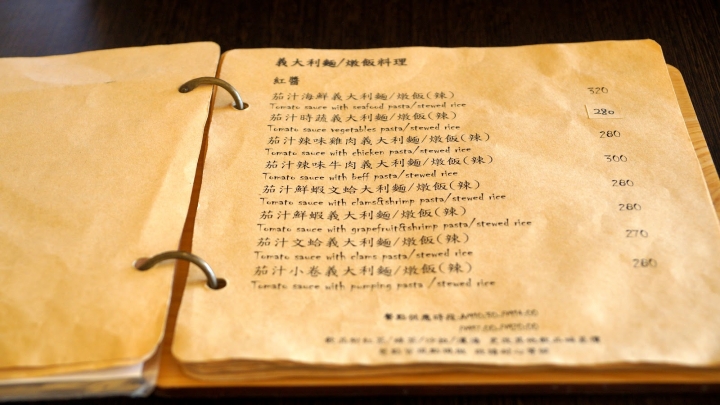 義大利麵/燉飯料理
紅醬
茄汁海鮮義大利麵/燉飯(辣) 320
Tomato sauce with seafood pasta/stewed rice
茄汁時蔬義大利麵/燉飯(辣) 280
Tomato sauce vegetables pasta/stewed rice
茄汁辣味雞肉義大利麵/燉飯(辣) 280
Tomato sauce with chicken pasta/stewed rice
茄汁辣味牛肉義大利麵/燉飯(辣) 300
Tomato sauce with beff pasta/stewed rice
茄汁鮮蝦文蛤大利麵/燉飯(辣) 280
Tomato sauce with clams&shrimp pasta/stewed rice
茄汁鮮蝦義大利麵/燉飯(辣) 280
Tomato sauce with grapefruit&shrimp pasta/stewed rice
茄汁文蛤義大利麵/燉飯(辣) 270
Tomato sauce with clams pasta/stewed rice
茄汁小卷義大利麵/燉飯(辣) 280
Tomato sauce with pumping pasta /stewed rice
餐點供應時段